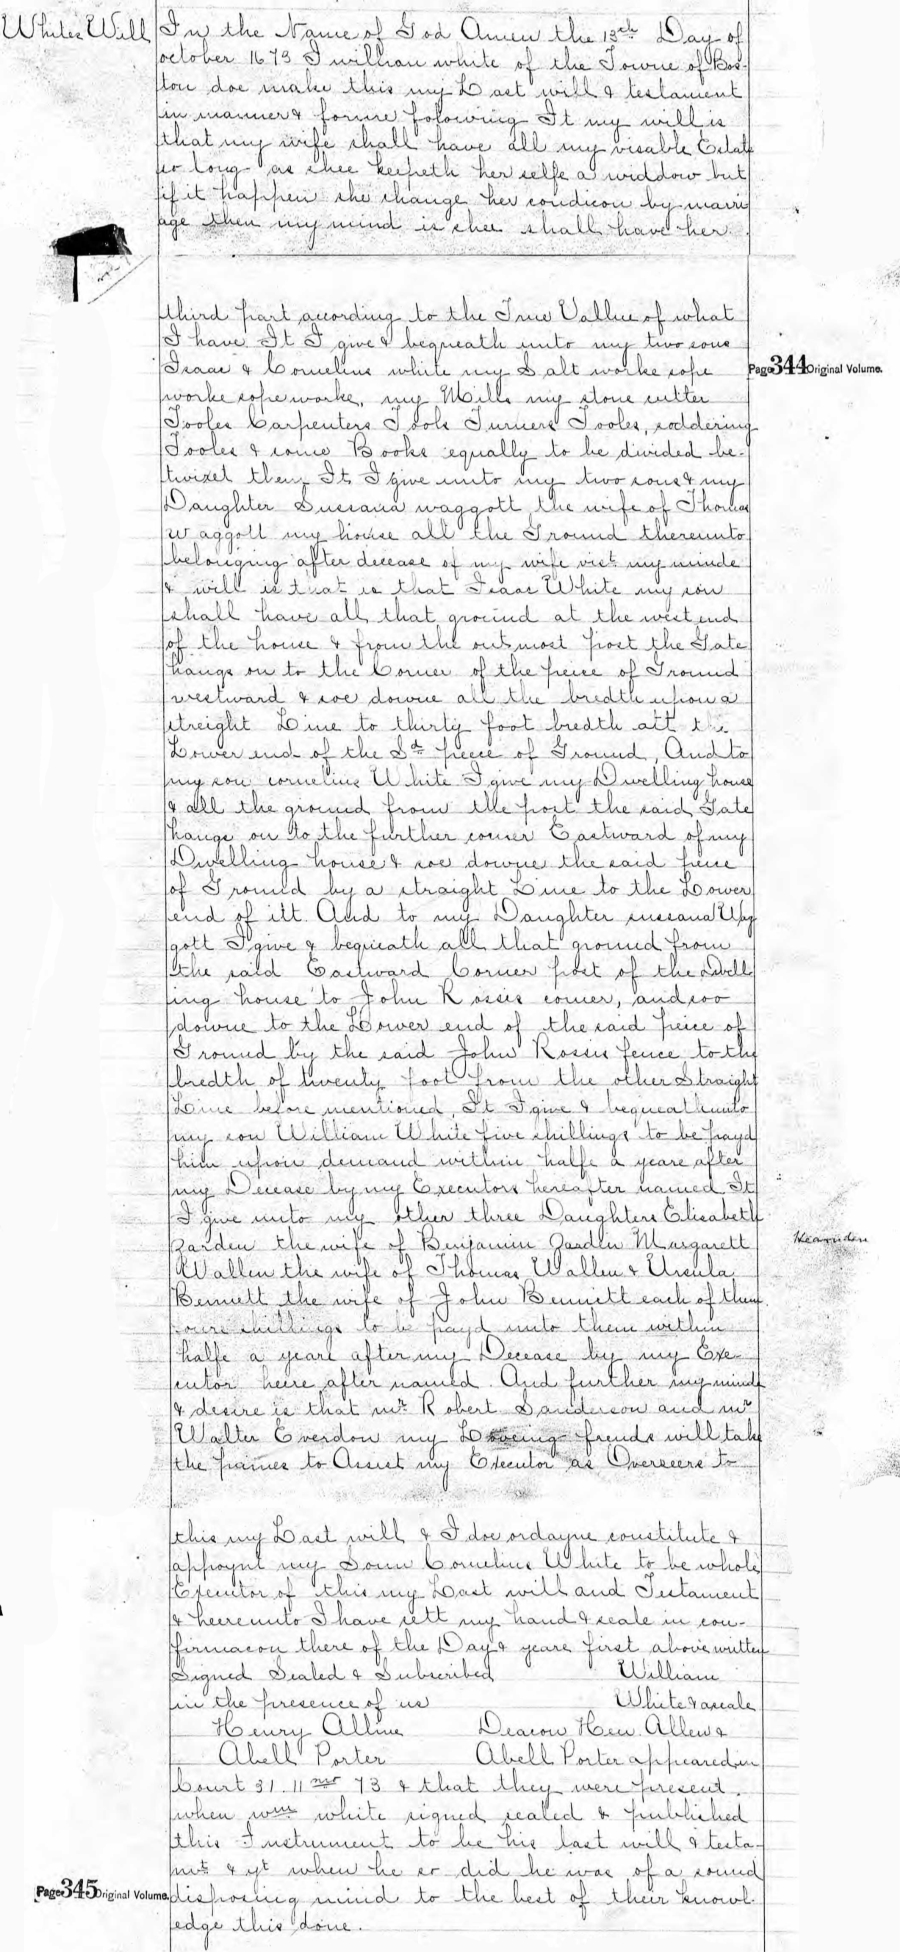 Whites Will
In the Name of God Amen the 13th Day of
october 1673 I william white of the Towne of Bos-
ton doe make this my Last will & testament
in manner & forme folowing It my will is
that my wife shall have all my visable Estate
so long as shee keepeth her selfe a widdow but
if it happen she change her condicon by marri
age then my mind is shee shall have her
third part according to the True Vallue of what
I have It I give & bequeath unto my two sons
Isaac & Cornelius white my Salt worke sope
worke sope worke, my Mills my stone cutter
Tooles Carpenters Tools Turners Tooles, soddering
Tooles & some Books equally to be divided be-
twixet them It I give unto my two sons & my
Daughter Sussana waggott the wife of Thomas
waggott my house all the Ground thereunto
belonging after decease of my wife vist my minde
& will is that is that Isaac White my son
shall have all that ground at the west end
of the house & from the outsmost post the Gate
hangs on to the Corner of the peice of Ground
westward & soe downe all the bredth upon a
streight Line to thirty foot bredth att the
Lower end of the Sd peece of Ground, And to
my son cornelius White I give my Dwelling house
& all the ground from the post the said Gate
hangs on to the further corner Eastward of my
Dwelling house & soe downe the said peice
of Ground by a straight Line to the Lower
end of itt. And to my Daughter sussana Wag
gott I give & bequeath all that ground from
the said Eastward Corner post of the Dwell
ing house to John Rosses corner, and soo
downe to the Lower end of the said peice of
Ground by the said John Rosses fence to the
bredth of twenty foot from the other Straight
Line before mentioned, It I give & bequeath unto
my son William White five shillings to be payd
him upon demand within halfe a yeare after
my Decease by my Executors hereafter named It
I give unto my other three Daughters Elisabeth
Zarden the wife of Benjamin Zarden Margarett
Wallen the wife of Thomas Wallen & Ursula
Bennett the wife of John Bennett each of them
shillings to be payd unto them within
halfe a yeare after my Decease by my Exe-
cutor heere after named. And further my minde
& desire is that mr Robert Sanderson and mr
Walter Everdon my Loveing frends will take
the paines to Assist my Executor as Overseers to
this my Last will & I doe ordayne constitute &
appoynt my Sonn Cornelius White to be whole
Executor of this my Last will and Testament
& heereunto I have sett my hand & seale in con-
firmacon there of the Day & yeare first above written
Signed Sealed & Subscribed William
in the presence of us White & a seale
Henry Alline Deacon Hen. Allen &
Abell Porter Abell Porter appeared in
Court 31. 11 mo 73 & that they were present
when wm white signed sealed & published
this Instrument to be his last will & testa-
mt & yt when he so did he was of a sound
disposing mind to the best of their knowl-
edge this done.
Page 344 Original Volume.
Hearnden
Page 345 Original Volume.